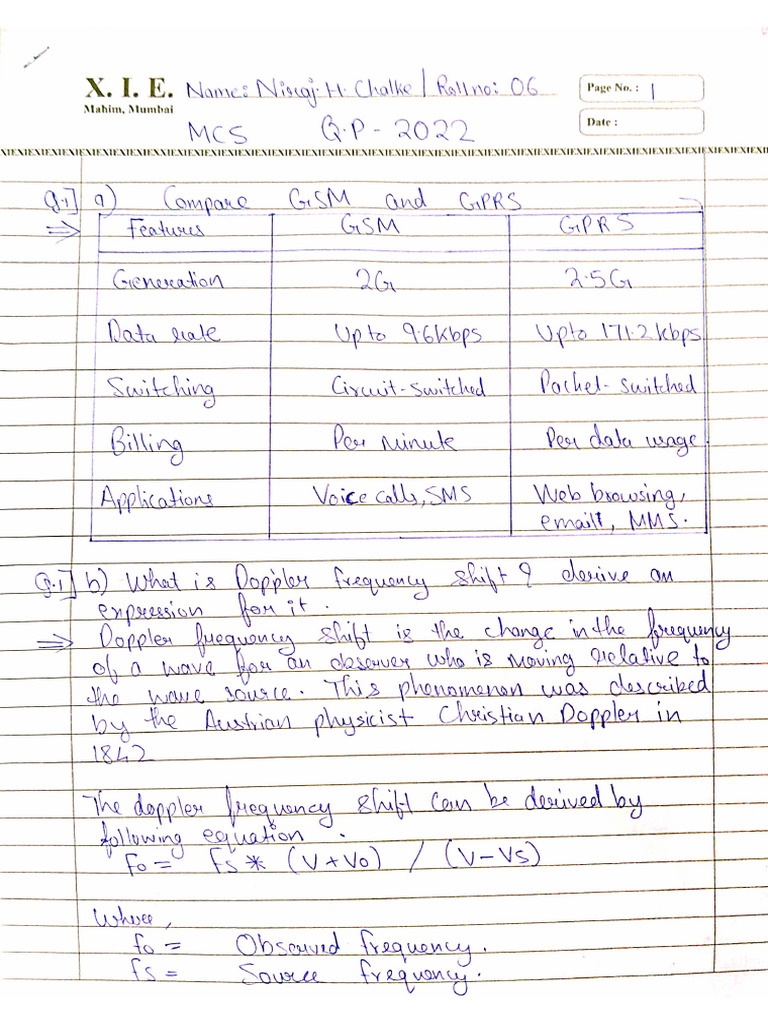 X. I. E. Name: Niraj. H. Chalke / Roll no: 06 Page No. : 1
Mahim, Mumbai
MCS Q.P - 2022 Date :
XIEXIEXIEXIEXIEXIEXIEXIEXIEXIEXIEXIEXIEXIEXIEXIEXIEXIEXIEXIEXIEXIEXIEXIEXIEXIEXIEXIEXIE
Q.1] a) Compare GSM and GPRS
⇒ Features GSM GPRS
Generation 2G 2.5G
Data rate Upto 9.6kbps Upto 171.2kbps
Switching Circuit-switched Packet-switched
Billing Per minute Per data usage
Applications Voice calls, SMS Web browsing,
email, MMS.
Q.1] b) What is Doppler frequency shift & derive an
expression for it.
⇒ Doppler frequency shift is the change in the frequency
of a wave for an observer who is moving relative to
the wave source. This phenomenon was described
by the Austrian physicist Christian Doppler in
1842
The doppler frequency shift can be derived by
following equation.
fo = fs * (V+Vo) / (V-Vs)
Where,
fo = Observed frequency.
fs = Source frequency.